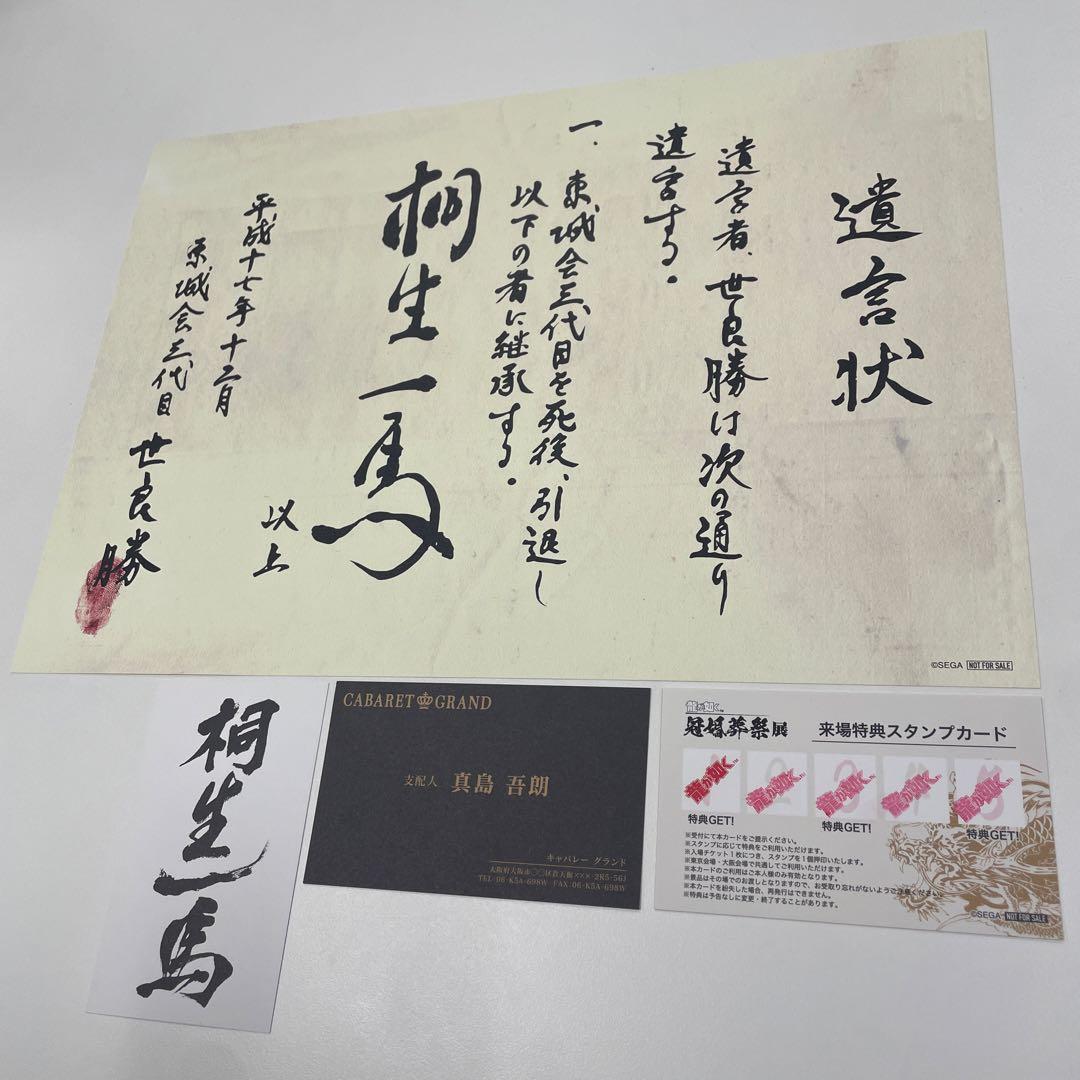 遺言状
遺言者、世良勝は次の通り
遺言する。
一、東城会三代目を死後、引退し
以下の者に継承する。
桐生一馬
以上
平成十七年十二月
東城会三代目 世良勝
©SEGA NOT FOR SALE
桐生一馬
CABARET GRAND
支配人 真島 吾朗
キャバレー グランド
TEL・06-K5A-698W FAX・06-K5A-698W
龍が如く
冠婚葬祭展
来場特典スタンプカード
龍が如く 龍が如く 龍が如く 龍が如く 龍が如く
特典GET! 特典GET! 特典GET!
※受付にて本カードをご提示ください。
※スタンプに応じて特典をご利用いただけます。
※入場チケット1枚につき、スタンプを1個押印いたします。
※東京会場・大阪会場で共通してご利用いただけます。
※本カードのご利用はご本人様のみ有効となります。
※景品はその場でのお渡しとなりますので、お受取り忘れがないようご注意ください。
※本カードを紛失した場合、再発行はできません。
※特典は予告なしに変更・終了することがあります。
©SEGA NOT FOR SALE